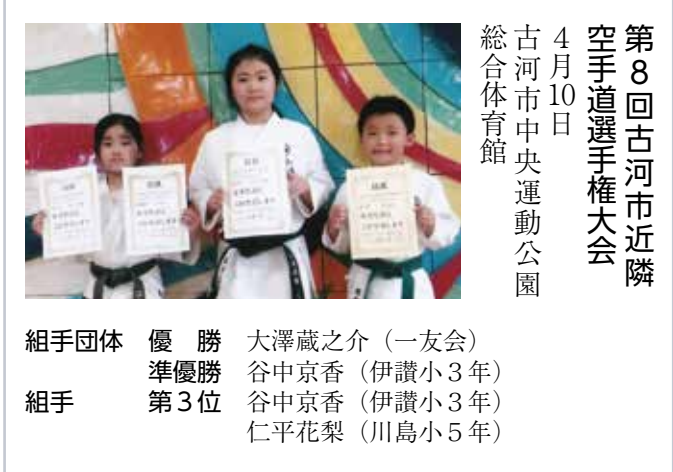 第8回古河市近隣
空手道選手権大会
4月10日
古河市中央運動公園
総合体育館
組手団体 優 勝 大澤蔵之介（一友会）
準優勝 谷中京香（伊讃小３年）
組手 第３位 谷中京香（伊讃小３年）
仁平花梨（川島小５年）